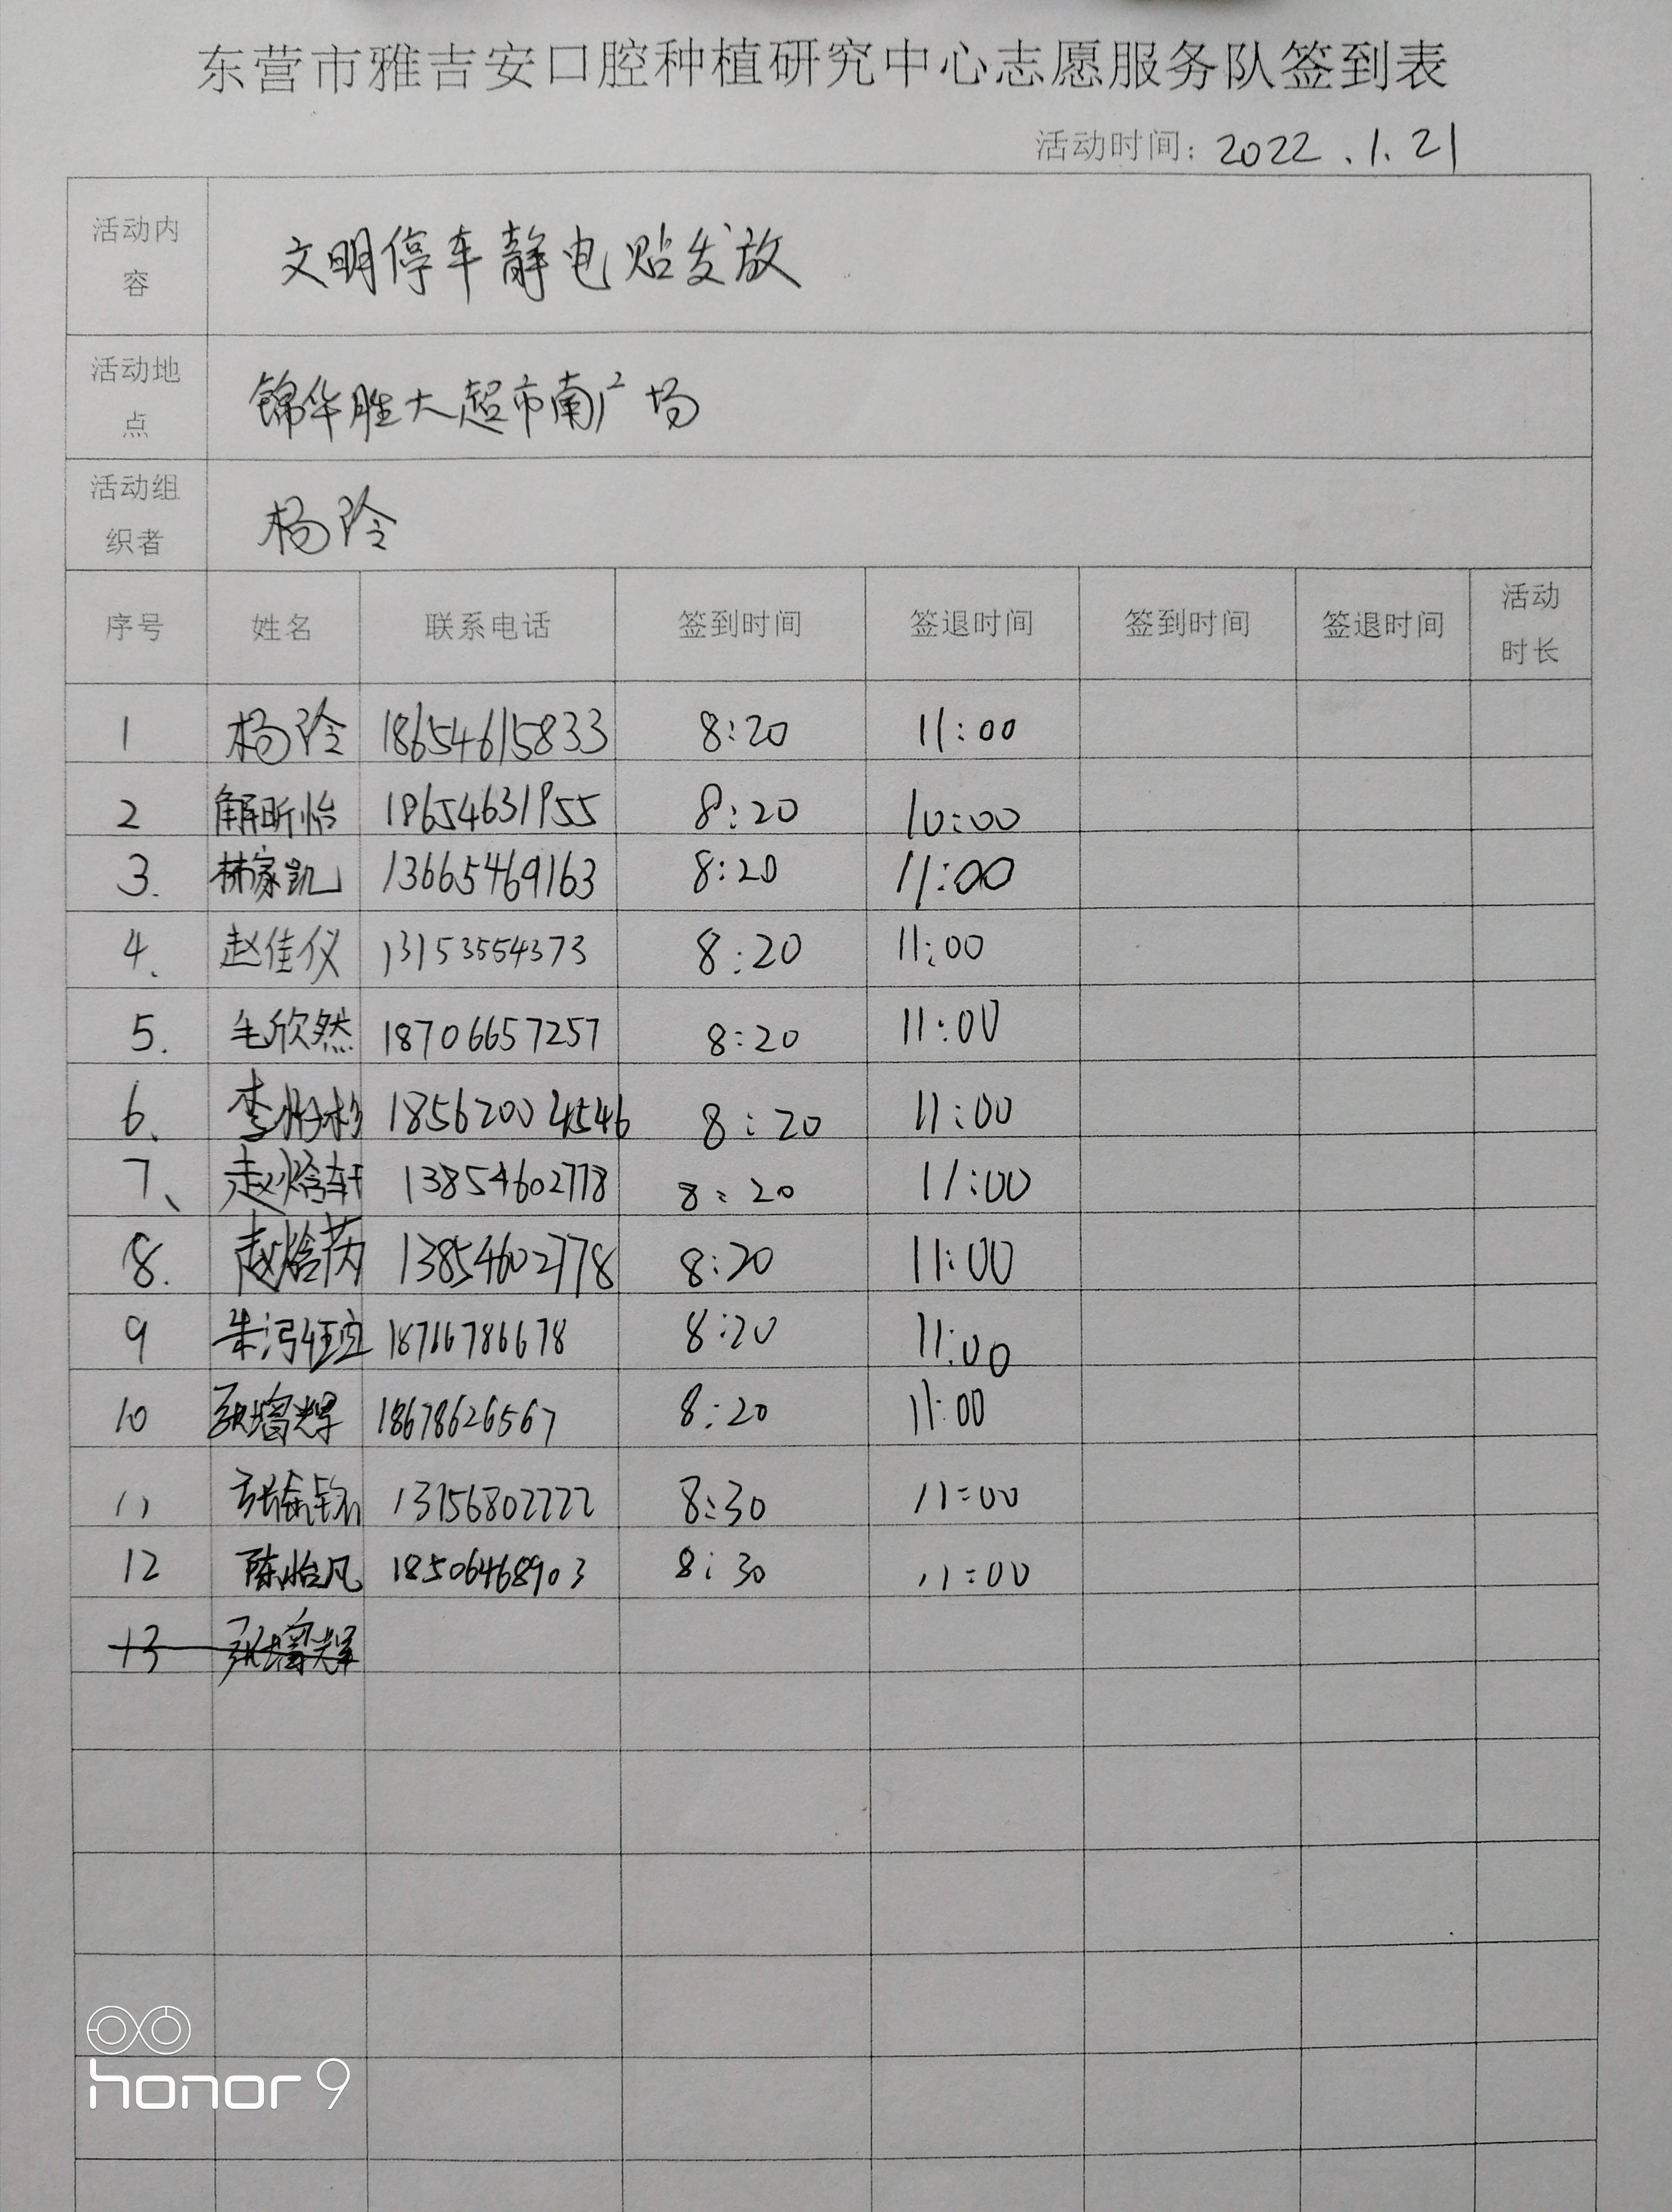 东营市雅吉安口腔种植研究中心志愿服务队签到表
活动时间: 2022.1.21
活动内容 文明停车静电贴发放
活动地点 锦华胜大超市南广场
活动组织者 杨玲
序号 姓名 联系电话 签到时间 签退时间 签到时间 签退时间 活动时长
1 杨玲 18654615833 8:20 11:00
2 解昕怡 18654631955 8:20 10:00
3. 林家凯 13665469163 8:20 11:00
4. 赵佳仪 13153554373 8:20 11:00
5. 毛欣然 18706657257 8:20 11:00
6. 李 18562004546 8:20 11:00
7、 赵焓轩 13854602778 8:20 11:00
8. 赵焓芮 13854602778 8:20 11:00
9 朱 18716786678 8:20 11:00
10 张增辉 18678626567 8:20 11:00
11 张 13156802222 8:30 11:00
12 陈怡凡 18506468903 8:30 11:00
13 张增辉
honor 9